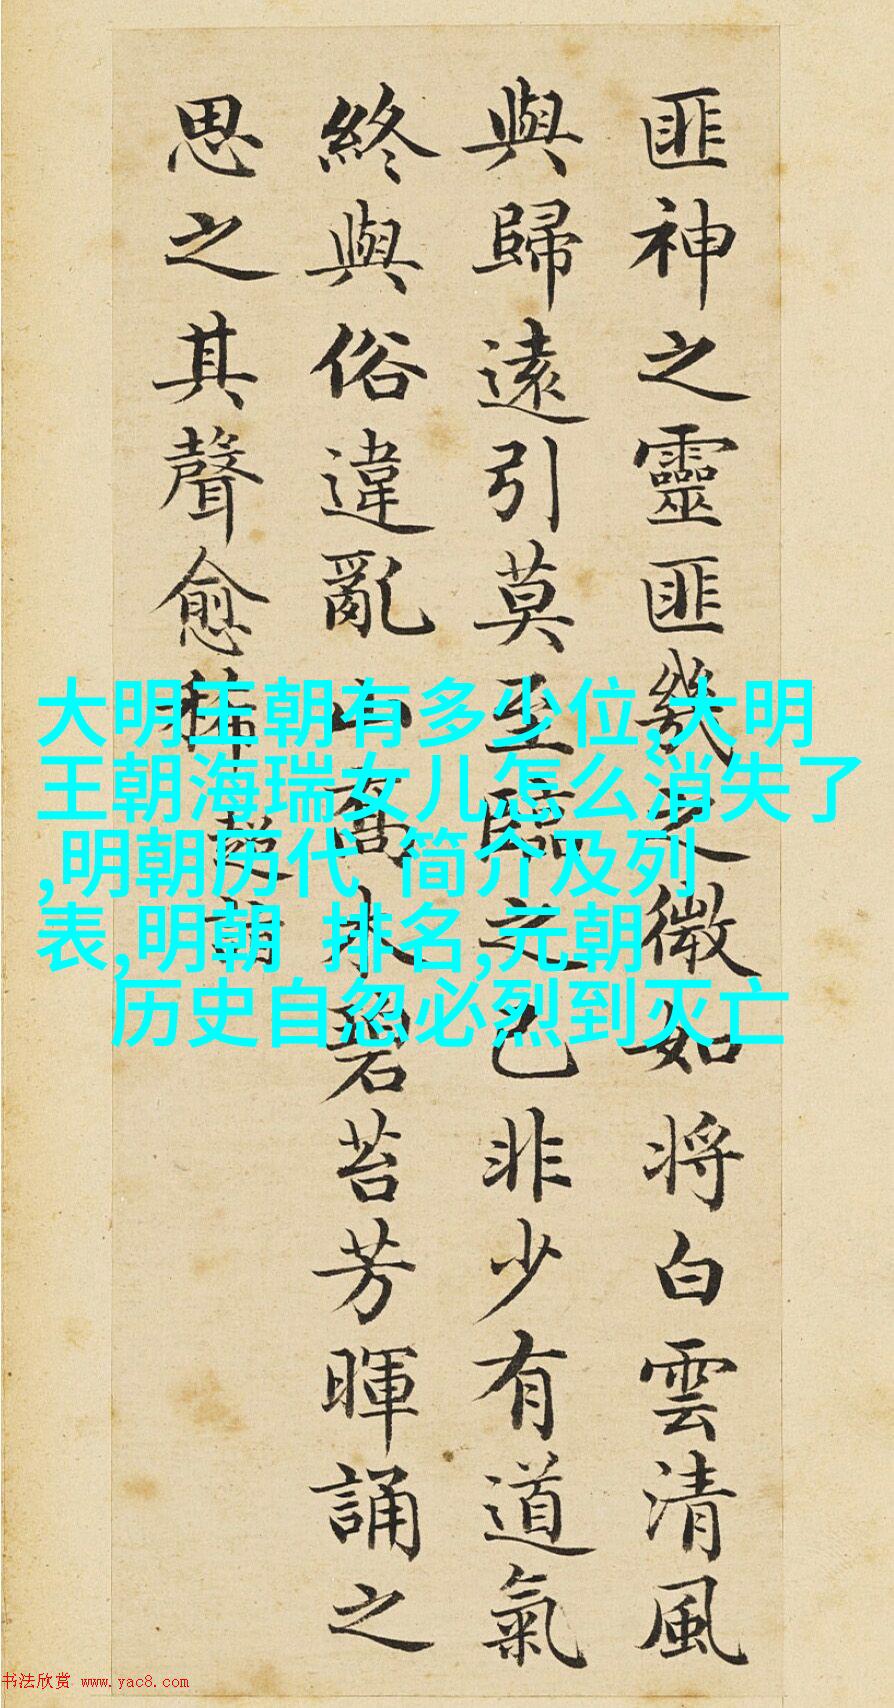 匪神之靈匪幾之微如將白雲清風
與歸遠引莫至臨之已非少有道氣
終與俗違亂山喬木碧苔芳暉誦之
思之其聲愈稀 超詣
大明王朝有多少位,大明
王朝海瑞女儿怎么消失了
,明朝历代 简介及列
表,明朝 排名,元朝
历史自忽必烈到灭亡
书法欣赏 www.yac8.com